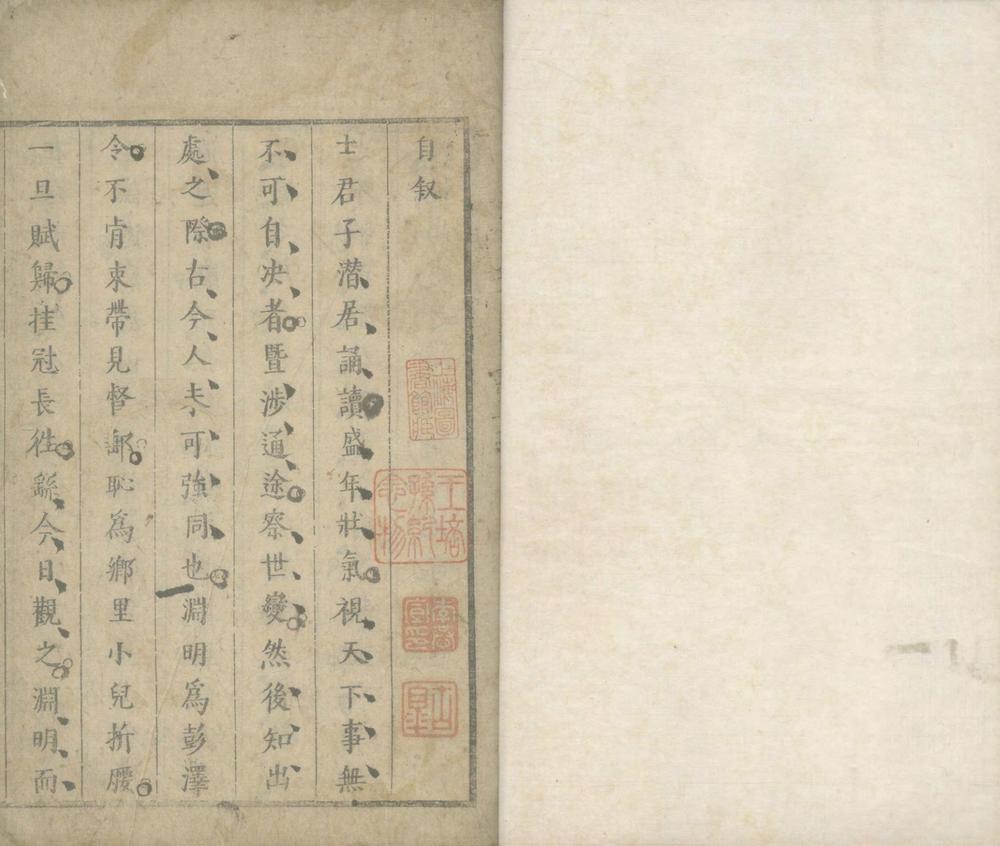 自叙
士君子潜居誦讀盛年狀氣視天下事無
不可自决者暨涉道途察世變然後知出
處之際古今人未可強同也淵明爲彭澤
令不肯束帶見督郵恥爲鄉里小兒折腰
一旦賦歸挂冠長徃繇今日觀之淵明而